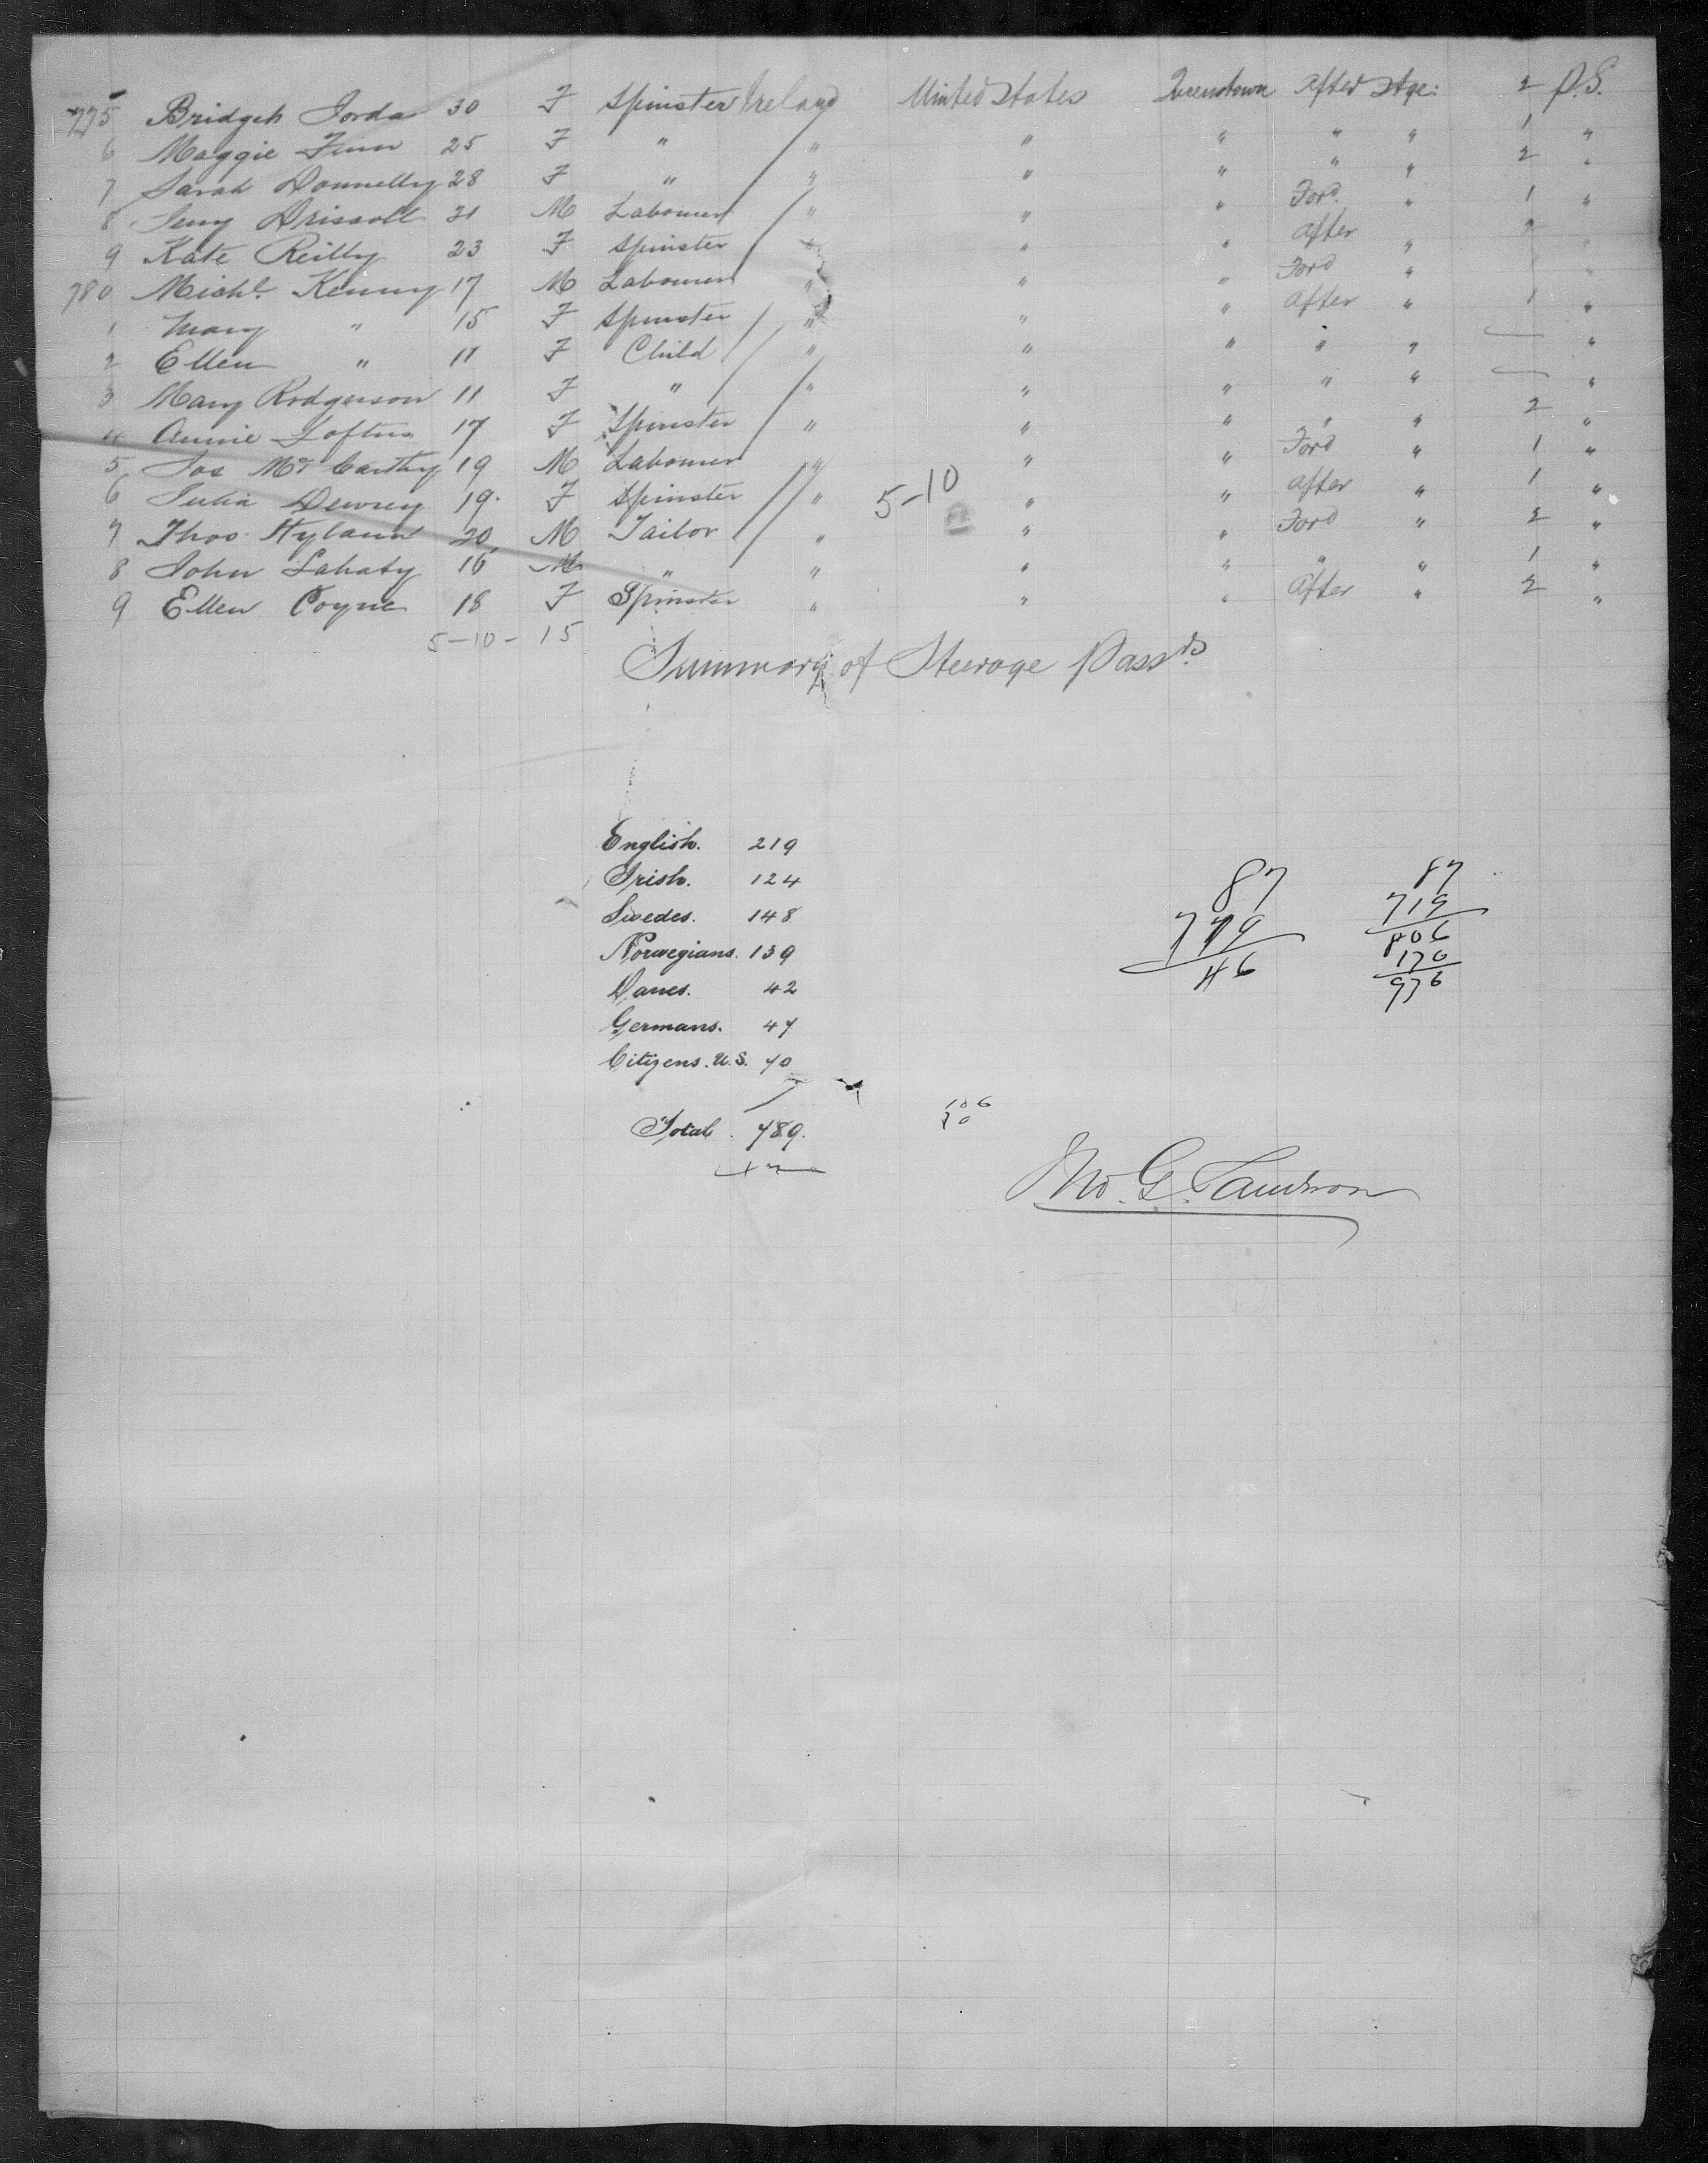 775 Bridget Jorda 30 F Spinster Ireland United States Queenstown After Stge: 2 P.S.
6 Maggie Finn 25 F " " " " " " 1 "
7 Sarah Donnelly 28 F " " " " " " 2 "
8 Jeny Driscoll 21 M Labourer " " " Ford " 1 "
9 Kate Reilly 23 F Spinster " " " After " 2
780 Michl. Kenny 17 M Labourer " " " Ford "
1 Mary " 15 F Spinster " " " After " 1 "
2 Ellen " 11 F Child " " " " " — "
3 Mary Rodgerson 11 F " " " " " " — "
4 Annie Loftus 17 F Spinster " " " " " 2 "
5 Jas McCarthy 19 M Labourer " " " Ford " 1 "
6 Julia 19 F Spinster " 5-10 " " After " 1 "
7 Thos Hyland 20 M Tailor " " " Ford " 2 "
8 John Lahaty 16 M " " " " " " 1 "
9 Ellen Coyne 18 F Spinster " " " After " 2 "
5-10-15
Summary of Steerage Passrs.
English. 219
Irish. 124
Swedes. 148
Norwegians. 139
Danes. 42
Germans. 47
Citizens. U.S. 70
Total. 789.
87
779
46
87
719
806
170
976
106
70
Jno. G.